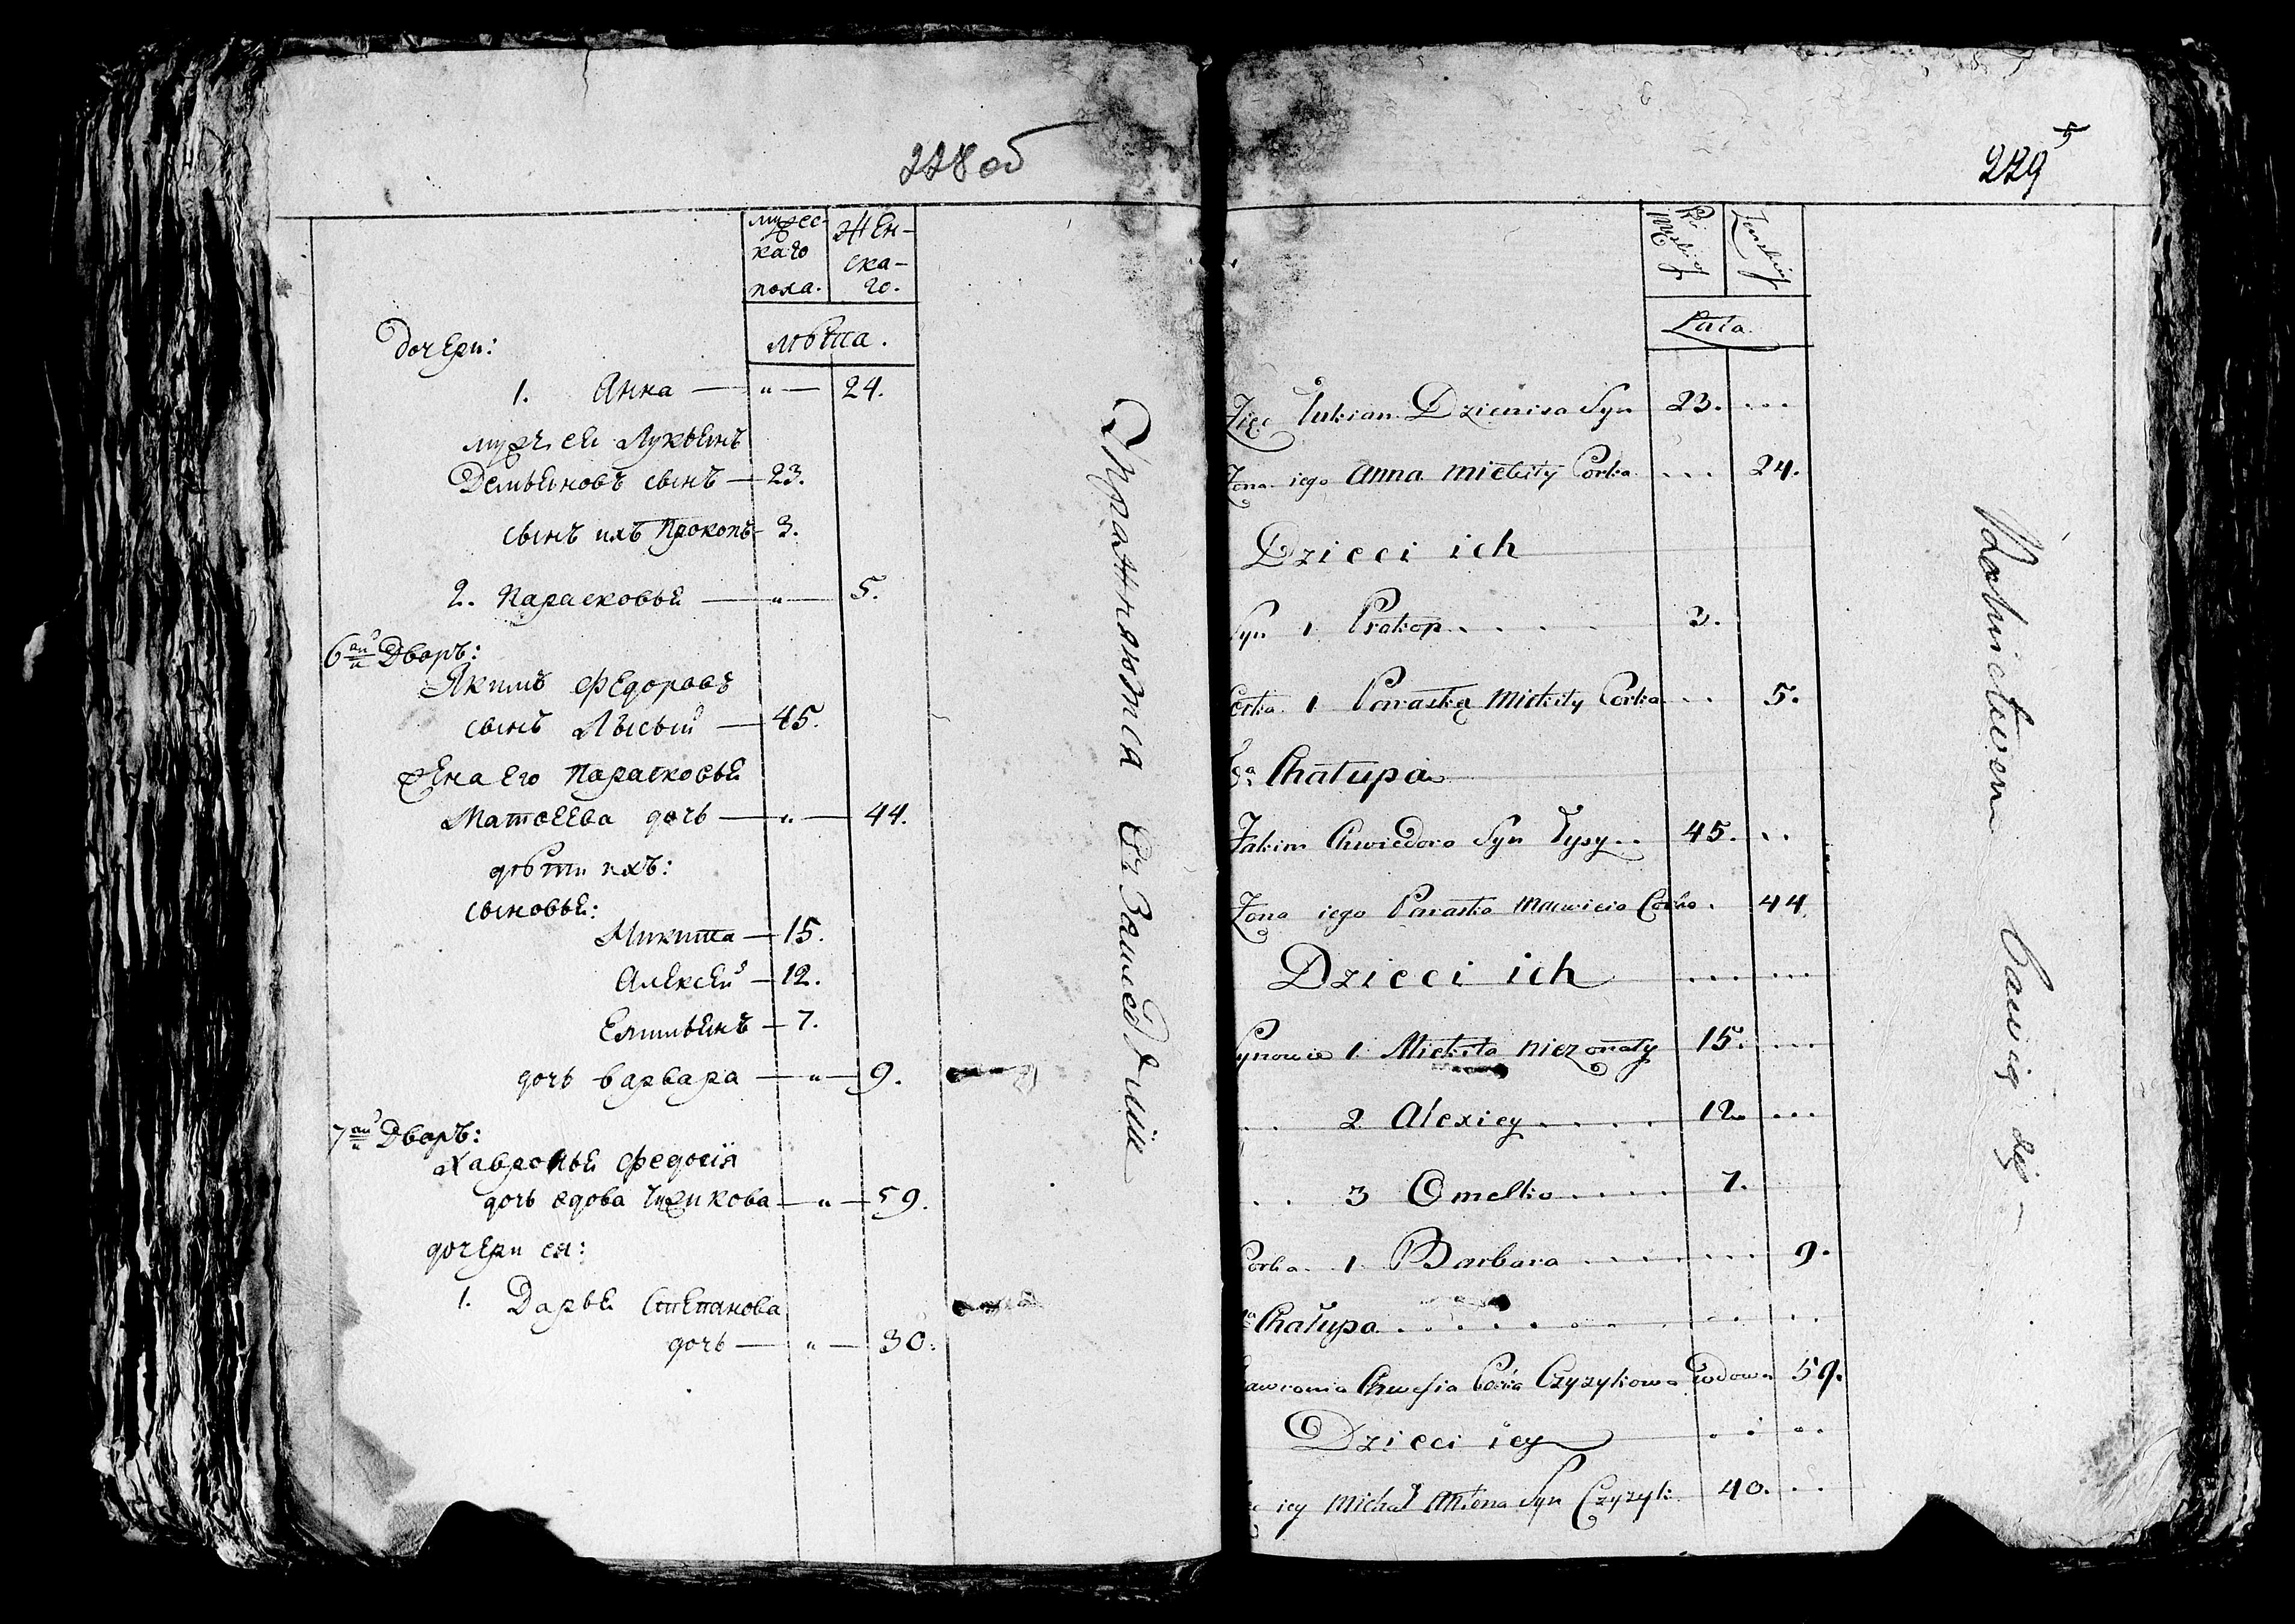 228 об
мужес-
каго
пола.
Жен-
ска-
го.
лѣта.
Дочери:
1. Анна — " — 24.
мужъ ея Лукьянъ
Демьяновъ сынъ — 23.
сынъ ихъ Прокопъ — 3.
2. Парасковья — " — 5.
6й Дворъ:
Якимъ Федоровъ
сынъ Лысый — 45.
жена его Парасковья
Матвеева дочь — " — 44.
дѣти ихъ:
сыновья:
Микита — 15.
Алексей — 12.
Емильянъ — 7.
дочь Варвара — " — 9.
7й Дворъ:
Хавронья Федосія
дочь вдова Чижикова — " — 59.
дочери ея:
1. Дарья Степанова
дочь — " — 30.
Упражняются въ Земледѣліи
229
5
Męskiey
Zenskiey
Lata.
Zięc Łukian Dzienisa Syn 23. ...
Zona iego Anna Mickity Corka ... 24.
Dzieci ich
Syn 1 Prokop. . . . 3.
Corka 1 Paraska Mickity Corka ... 5.
6a Chałupa
Jakim Chwiedora Syn Łysy .. 45. ..
Zona iego Paraska Corka . 44.
Dzieci ich ... ...
Synowie 1 Mickita niezonaty 15. ...
. . 2 Alexiey . . . . 12. ...
. . 3 Omelko . . . . 7.
Corka 1 Barbara . . . . ... 9.
Chałupa . . . . . . .
Corka Czyzykowa Wdowa 59.
Dzieci iey . . ..
iey Michał Syn Czyzyk 40. ..
Rolnictwem bawią się